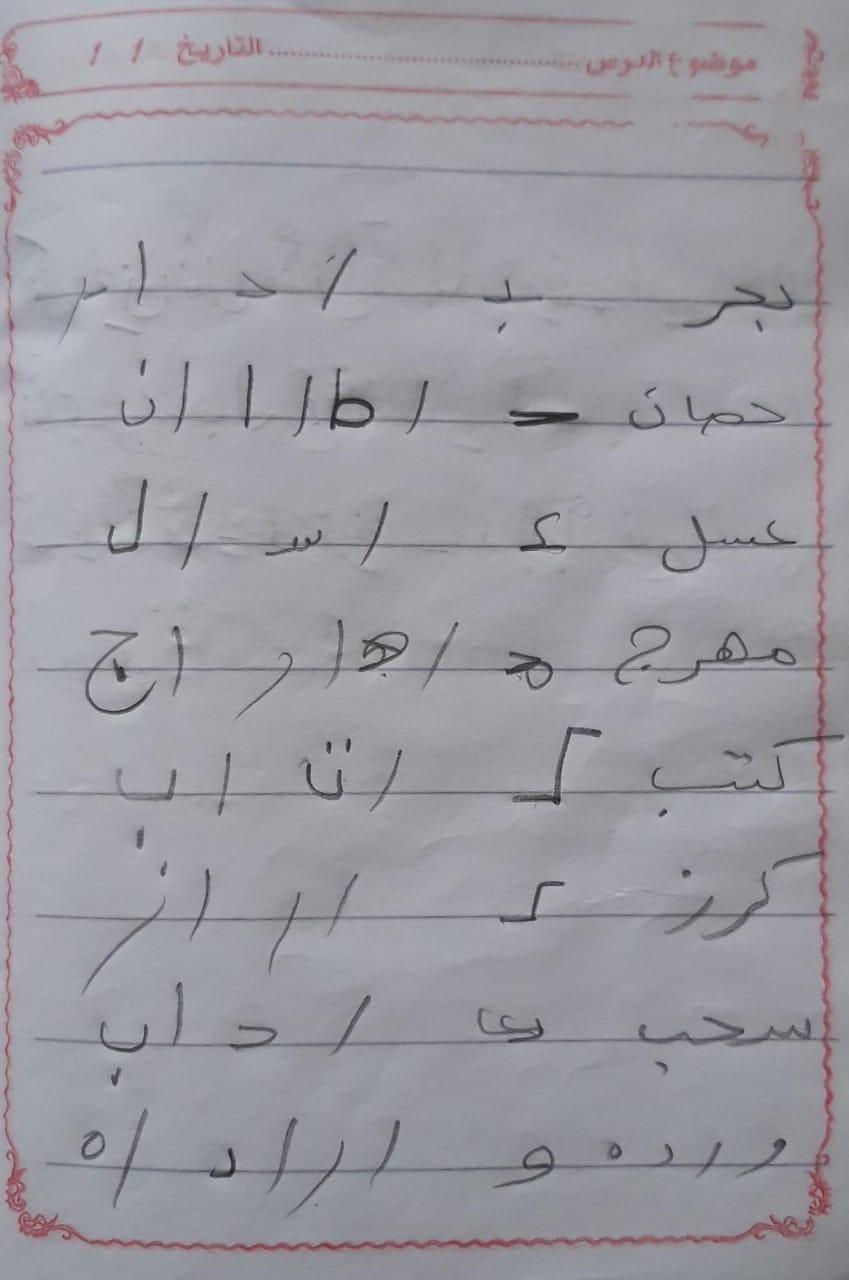 موضوع الدرس ........................ التاريخ / /
بحر بـ / حـ / ر
حصان حـ / صـ / ا / ن
عسل عـ / سـ / ل
مهرج مـ / هـ / ر / ج
كتب كـ / ت / ب
كرز كـ / ر / ز
سحب سـ / حـ / ب
ورده و / ر / د / ه